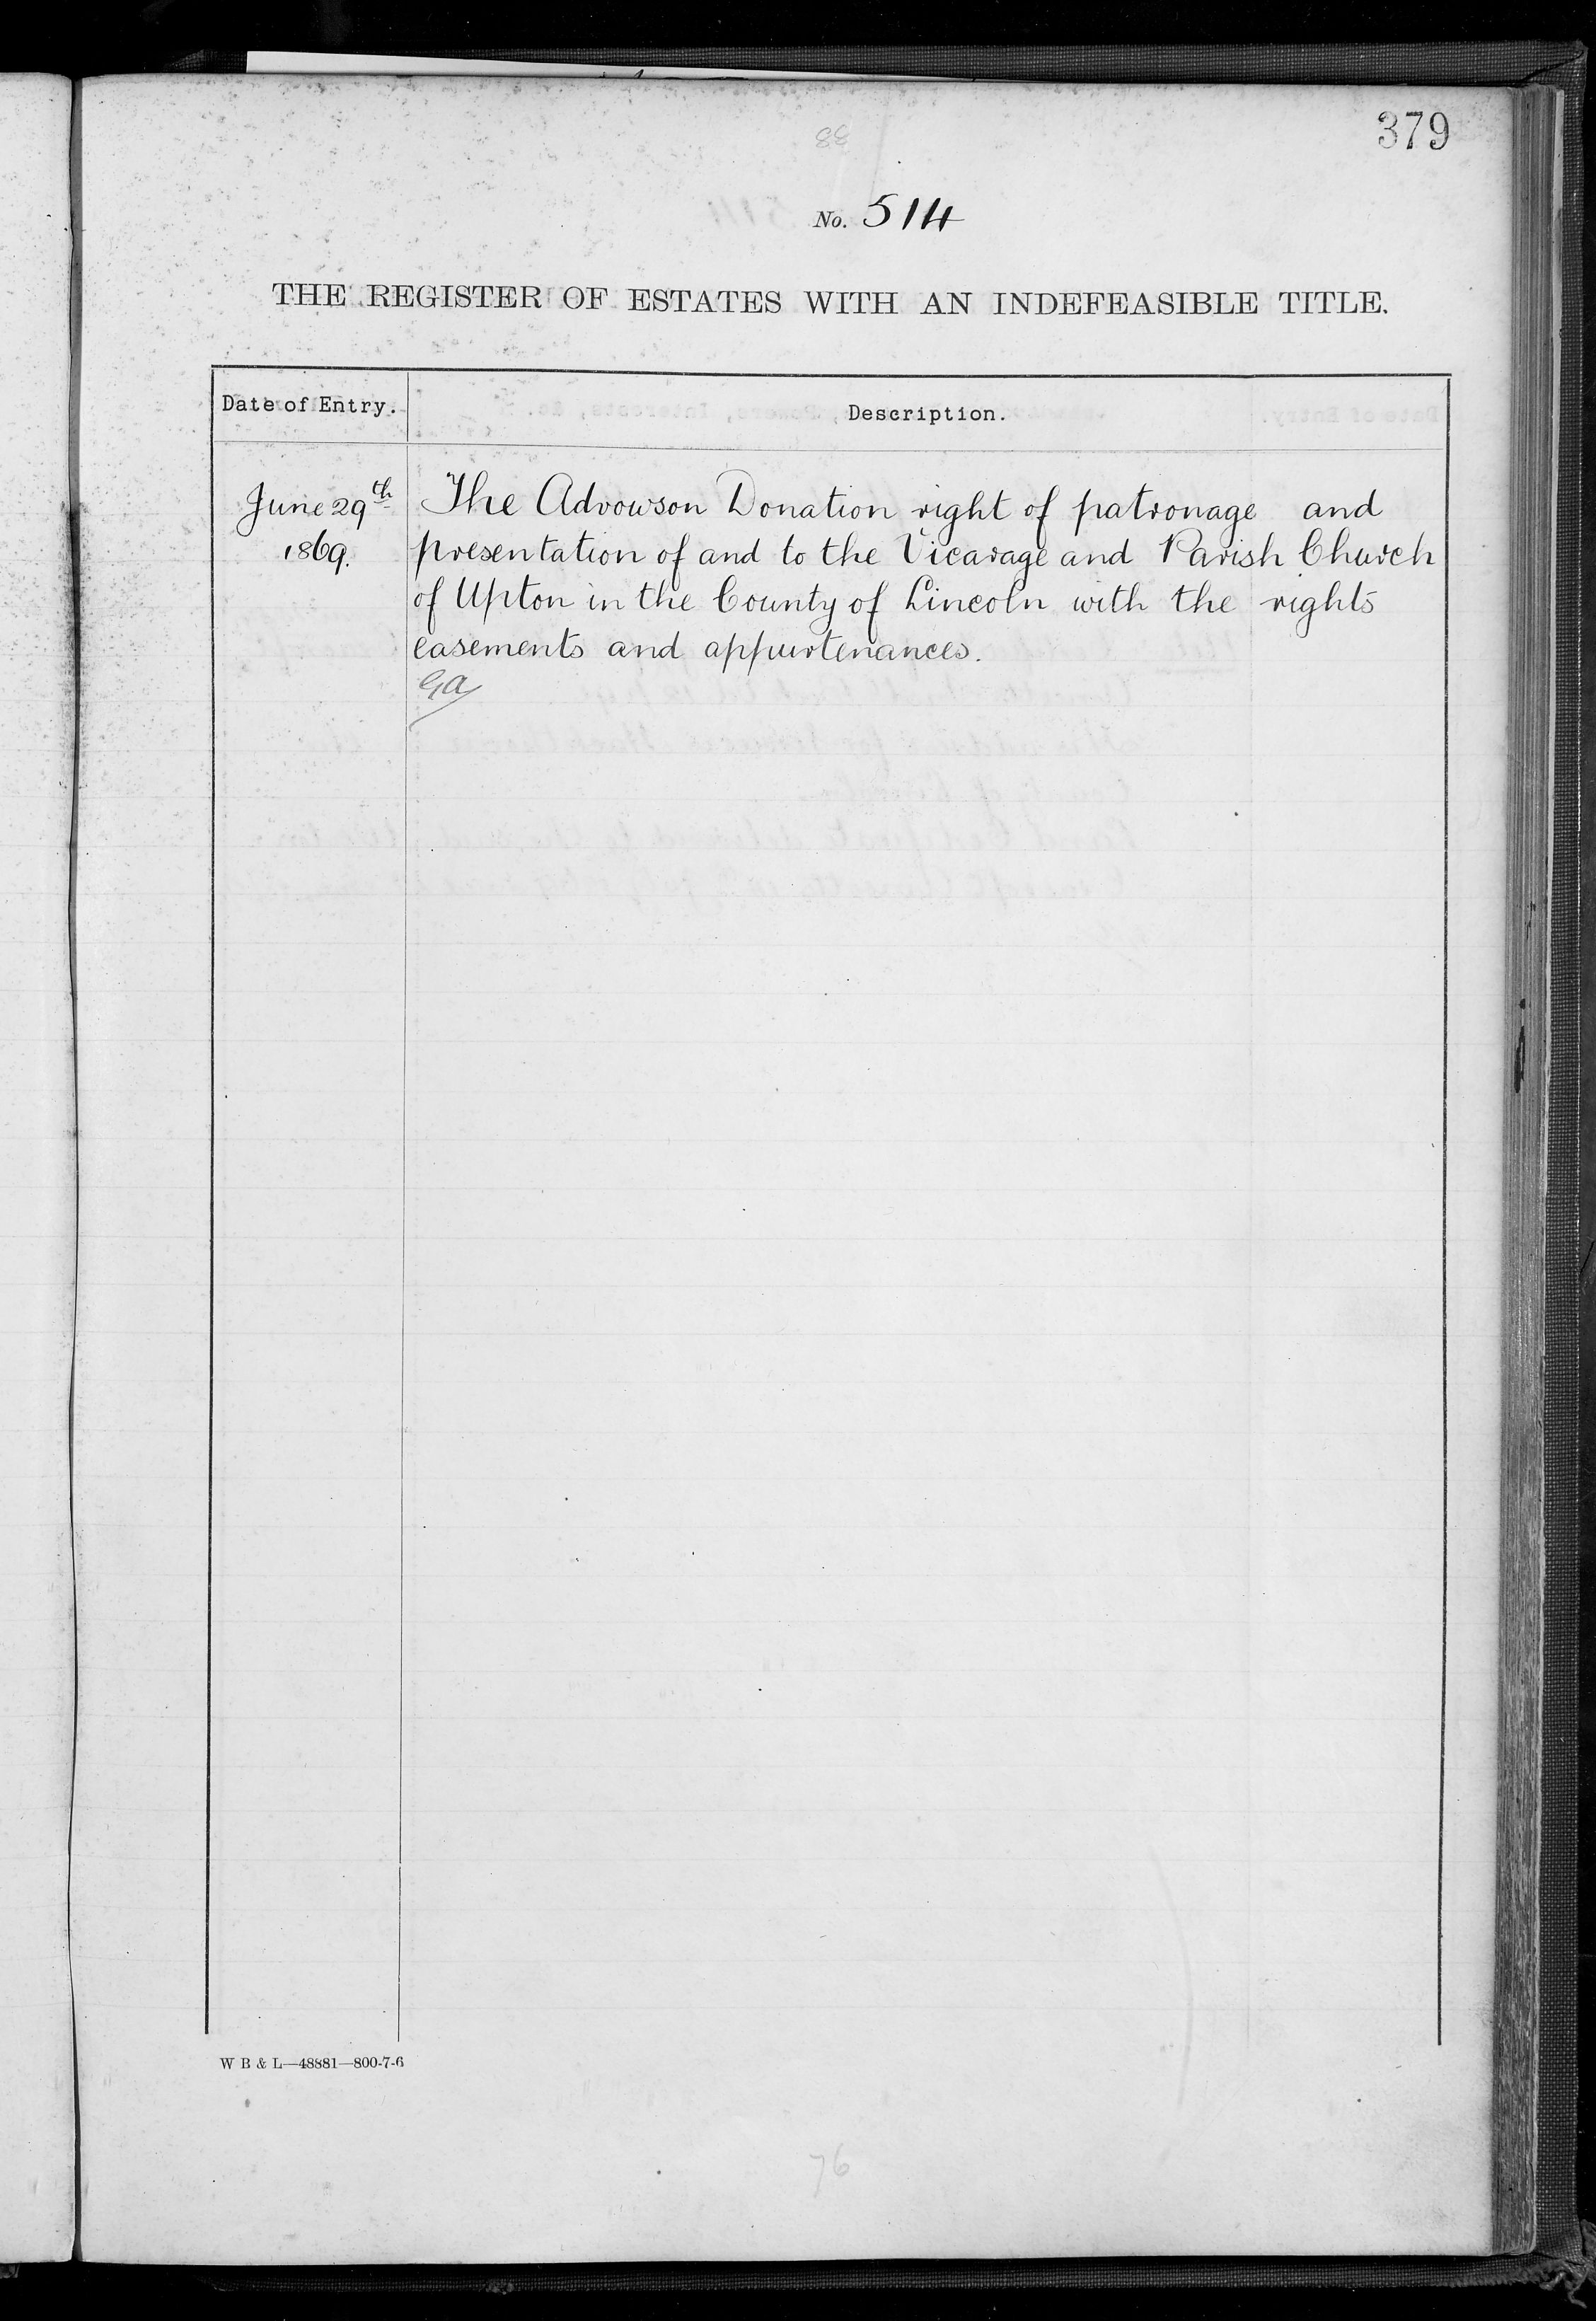 379
No. 514
THE REGISTER OF ESTATES WITH AN INDEFEASIBLE TITLE.
Date of Entry. Description.
June 29th The Advowson Donation right of patronage and
1869. presentation of and to the Vicarage and Parish Church
of Upton in the County of Lincoln with the rights
easements and appurtenances.
W B & L—48881—800-7-6
76